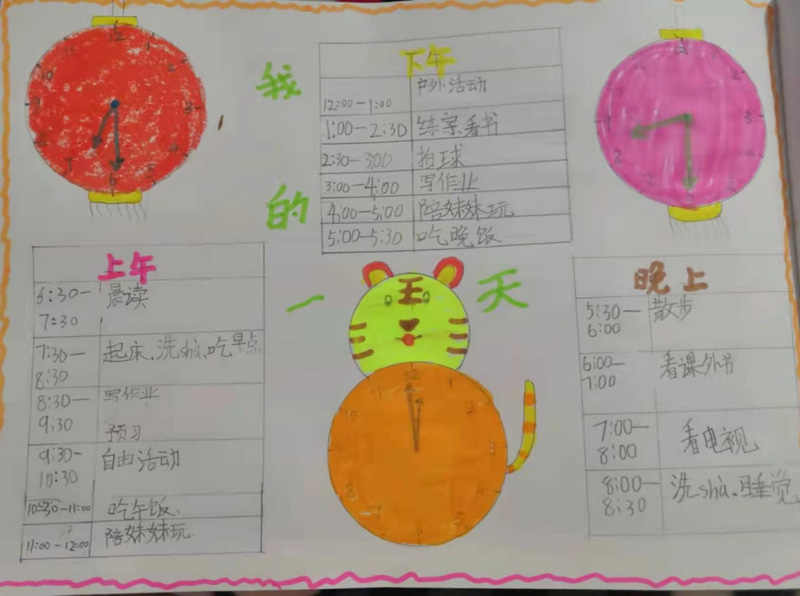 我的一天
上午
6:30-7:30 晨读
7:30-8:30 起床、洗shù、吃早点
8:30-9:30 写作业 预习
9:30-10:30 自由活动
10:30-11:00 吃午饭
11:00-12:00 陪妹妹玩
下午
12:00-1:00 户外活动
1:00-2:30 练字、看书
2:30-3:00 拍球
3:00-4:00 写作业
4:00-5:00 陪妹妹玩
5:00-5:30 吃晚饭
王
晚上
5:30-6:00 散步
6:00-7:00 看课外书
7:00-8:00 看电视
8:00-8:30 洗shù、睡觉